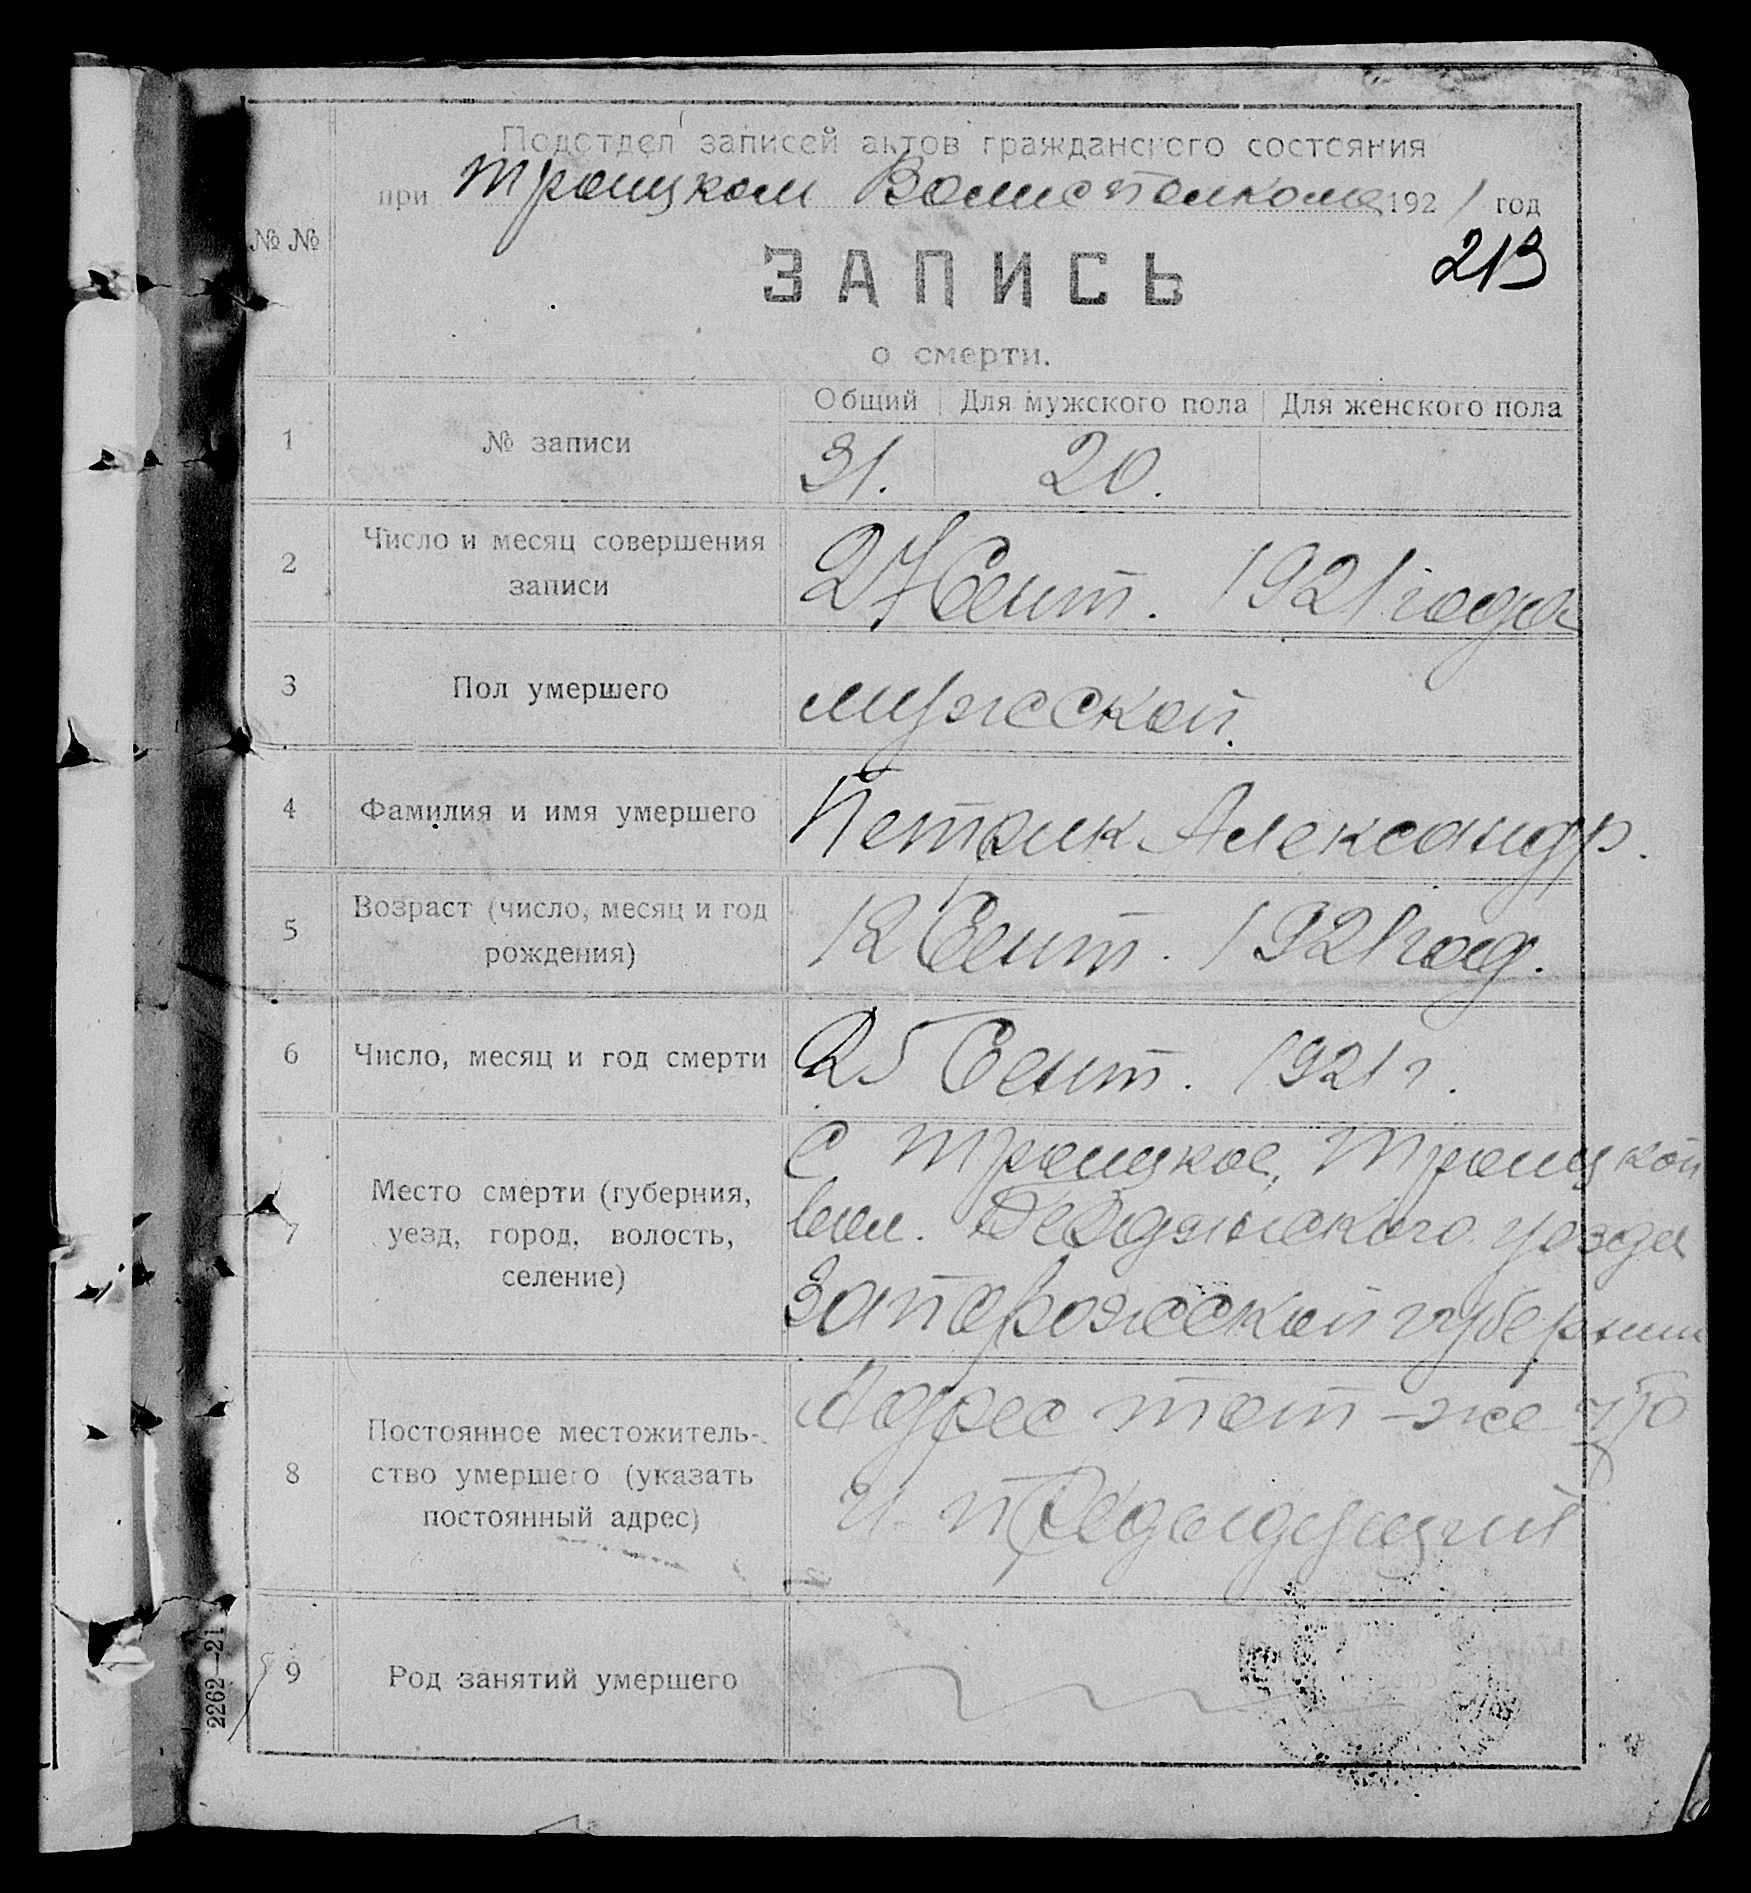 Подотдел записей актов гражданского состояния
при Троицком Волисполкоме 1921 год
№ №
213
ЗАПИСЬ
о смерти.
Общий Для мужского пола Для женского пола
1 № записи 31. 20.
2 Число и месяц совершения
записи
27 Сент. 1921 года
3 Пол умершего мужской.
4 Фамилия и имя умершего Петрик Александр.
5 Возраст (число, месяц и год
рождения)
12 Сент. 1921 год.
6 Число, месяц и год смерти 25 Сент. 1921 г.
7 Место смерти (губерния,
уезд, город, волость,
селение)
С Троицкое, Троицкой
вол. уезда
Запорожской губернии
8 Постоянное местожитель-
ство умершего (указать
постоянный адрес)
Адрес тот-же что
и предыдущий
9 Род занятий умершего
2262—21